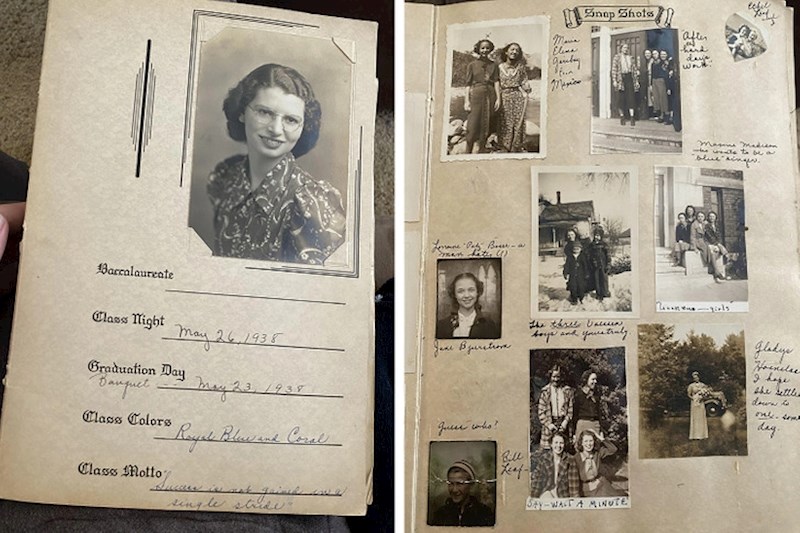 Baccalaureate
Class Night May 26, 1938
Graduation Day
Banquet -- May 23, 1938
Class Colors Royal Blue and Coral
Class Motto "Success is not gained in a
single stride"
Snap Shots
Ethel
Maria
Elena
from
Mexico
After
a hard
days
work.
Madison
who wants to be a
"blues" singer.
Lorraine "Pat" - a
man hater (!)
Jane Bjurstrom
The three
boys and yours truly
girls
Guess who?
Bill
Leaf-
SAY-WAIT A MINUTE
Gladys
I hope
she settles
down to
one - some
day.